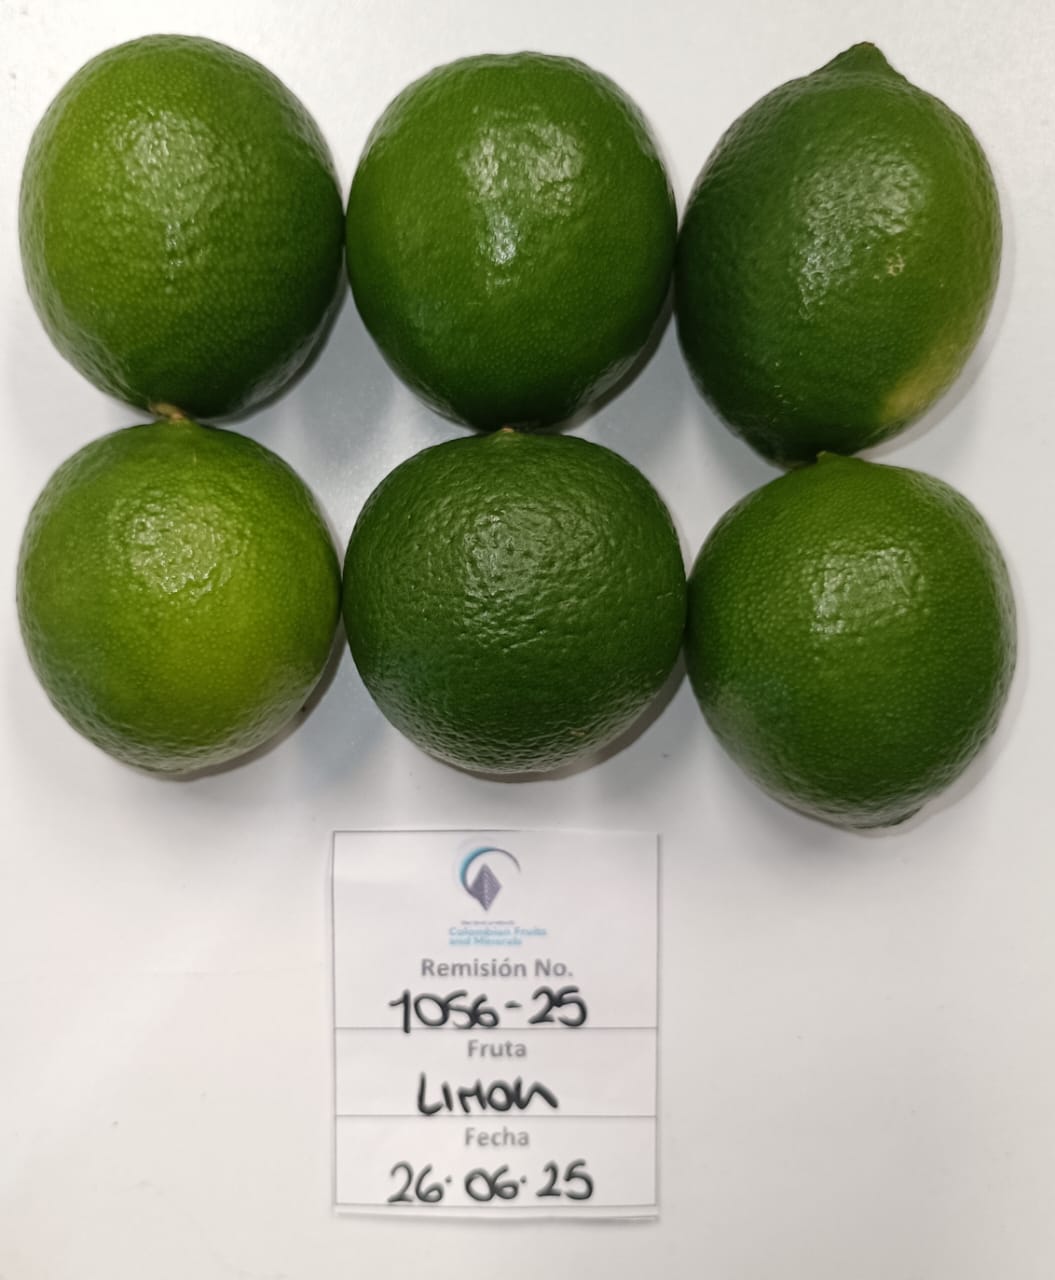 Colombian Fruits
and Minerals
Remisión No.
1056-25
Fruta
LIMON
Fecha
26·06·25